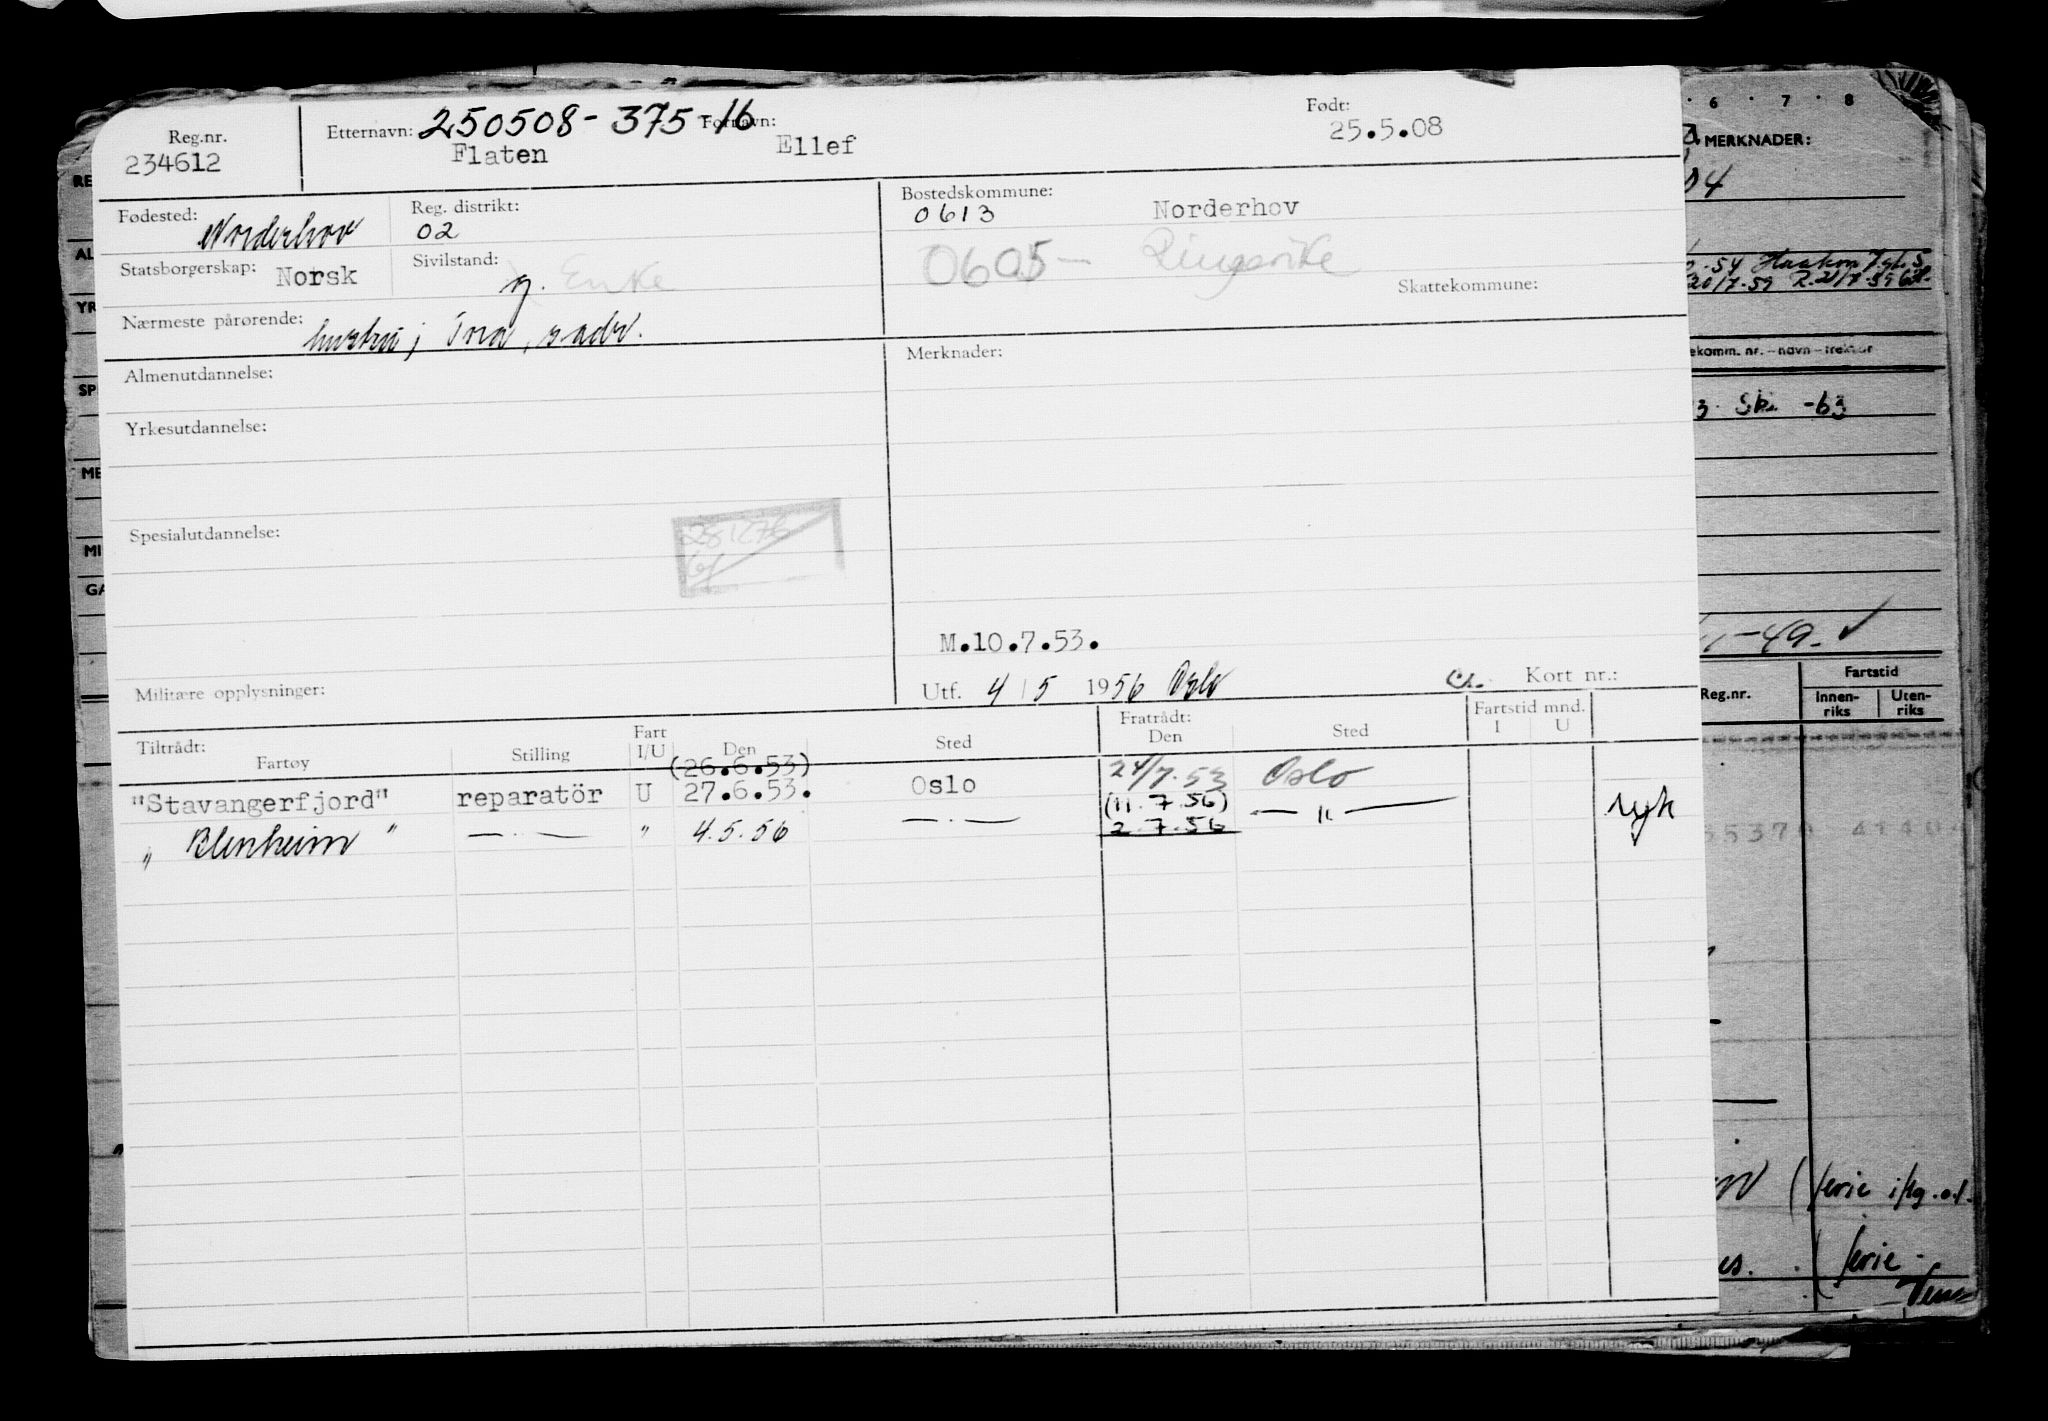 Reg.nr. Etternavn: 250508-375-16 Fornavn: Født:
234612 Flaten Ellef 25.5.08
Fødested: Norderhov Reg. distrikt: 02 Bostedskommune: 0613 Norderhov
Statsborgerskap: Norsk Sivilstand: g. Enke 0605- Ringerike
Skattekommune:
Nærmeste pårørende: hustru; Ina, sadr.
Almenutdannelse: Merknader:
Yrkesutdannelse:
Spesialutdannelse: 281276
M.10.7.53.
Militære opplysninger: Utf. 4/5 1956 Oslo Kort nr.:
Tiltrådt: Fratrådt: Fartstid mnd.
Fartøy Stilling Fart I/U Den Sted Den Sted I U
(26.6.53)
"Stavangerfjord" reparatör U 27.6.53. Oslo 24/7.53 Oslo
(11.7.56) — " —
" Blenheim " — . — " 4.5.56 — . — 2.7.56 ryk
6 . 7 . 8
MERKNADER:
54 Haakon
20/7.59
ekomm. nr. — navn — trekkår
3 Ski -63
-49. ✓
Reg.nr. Fartstid
Innen-riks Uten-riks
RE
AL
YR
SP
ME
MI
GA
(serie
(serie